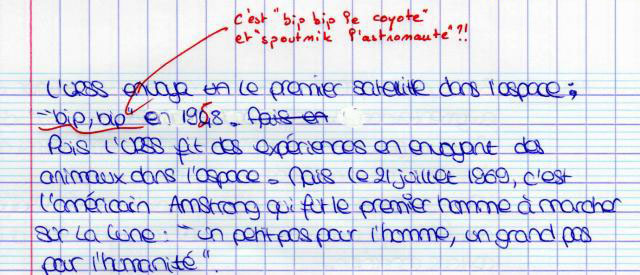 c'est "bip bip le coyote"
et "spoutnik l'astronaute"?!
L'URSS envoya en le premier satellite dans l'espace ;
"bip, bip" en 1958. Mais en
Puis l'URSS fit des expériences en envoyant des
animaux dans l'espace. Mais le 21 juillet 1969, c'est
l'américain Amstrong qui fut le premier homme à marcher
sur la lune : "un petit pas pour l'homme, un grand pas
pour l'humanité".